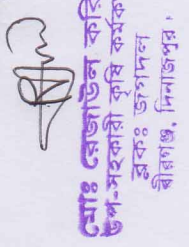 মোঃ রেজাউল করি
উপ-সহকারী কৃষি কর্মক
ব্লকঃ জগদল
বীরগঞ্জ, দিনাজপুর।